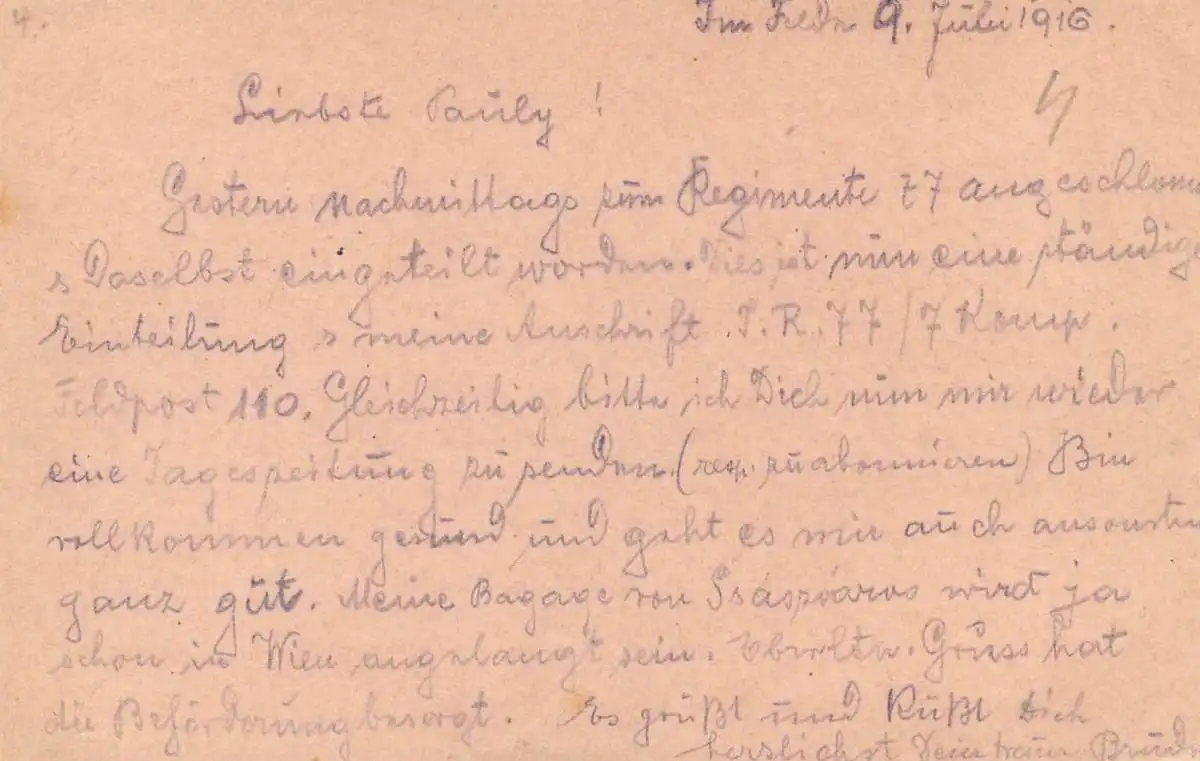 4.
Im Felde 9. Juli 1916.
Liebste Pauly!
4
Gestern nachmittags zum Regimente 77 angeschlossen
u Daselbst eingeteilt worden. Dies ist nun eine ständige
Einteilung u meine Anschrift I.R. 77/7 Komp.
Feldpost 110. Gleichzeitig bitte ich Dich nun mir wieder
eine Tageszeitung zu senden (resp. zu abonnieren) Bin
vollkommen gesund und geht es mir auch ansonsten
ganz gut. Meine Bagage von Szászváros wird ja
schon in Wien angelangt sein. Oberltn. Grüss hat
die Beförderung besorgt. Es grüßt und küßt Dich
herzlichst Dein treuer Bruder